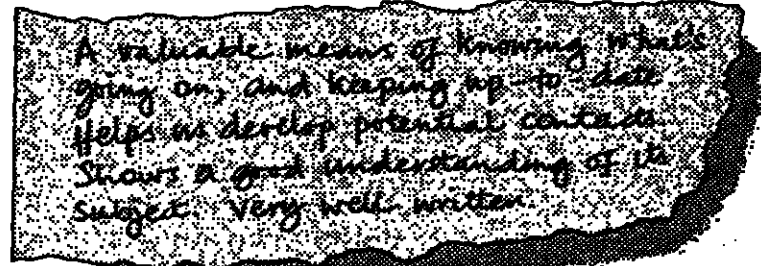 A valuable means of knowing what's
going on, and keeping up-to-date
Helps us develop potential contacts.
Shows a good understanding of its
subject. Very well written.